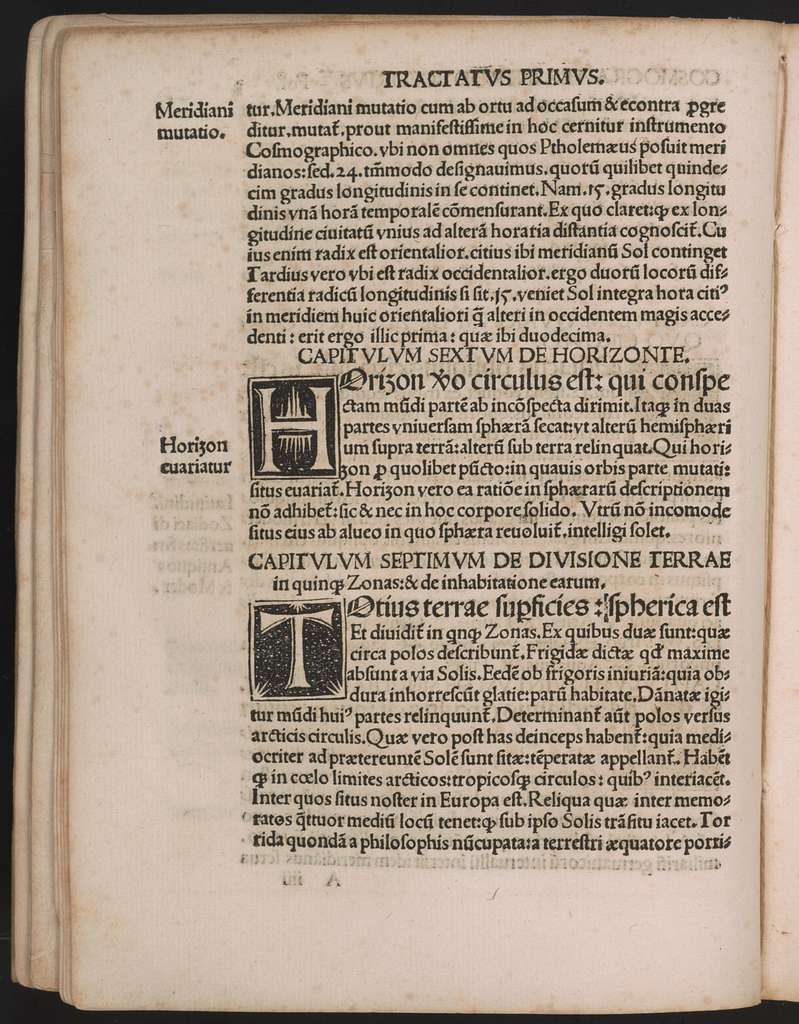 TRACTATVS PRIMVS.
Meridiani
mutatio.
tur.Meridiani mutatio cum ab ortu ad occaſum & econtra ꝓgre
ditur.mutat̃.prout manifeſtiſſime in hoc cernitur inſtrumento
Coſmographico.vbi non omnes quos Ptholemæus poſuit meri
dianos:ſed.24.tm̃modo deſignauimus.quotũ quilibet quinde⸗
cim gradus longitudinis in ſe continet.Nam.15.gradus longitu
dinis vnã horã temporalẽ cõmenſurant.Ex quo claret:ꝙ ex lon⸗
gitudine ciuitatũ vnius ad alterã horaria diſtantia cognoſcit̃.Cu
ius enim radix eſt orientalior.citius ibi meridianũ Sol continget
Tardius vero vbi eſt radix occidentalior.ergo duorũ locorũ dif⸗
ferentia radicũ longitudinis ſi ſit.15.veniet Sol integra hora citiꝰ
in meridiem huic orientaliori q̃ alteri in occidentem magis acce⸗
denti : erit ergo illic prima : quæ ibi duodecima.
CAPITVLVM SEXTVM DE HORIZONTE.
HOrizon v̆o circulus eſt: qui conſpe
ctam mũdi partẽ ab incõſpecta dirimit.Itaqꝫ in duas
partes vniuerſam ſphærã ſecat:vt alterũ hemiſphæri
um ſupra terrã:alterũ ſub terra relinquat.Qui hori⸗
zon ꝑ quolibet pũcto:in quauis orbis parte mutati:
ſitus euariat̃.Horizon vero ea ratiõe in ſphærarũ deſcriptionem
nõ adhibet̃:ſic & nec in hoc corpore ſolido. Vtrũ nõ incomode
ſitus eius ab alueo in quo ſphæra reuoluit̃.intelligi ſolet.
Horizon
euariatur
CAPITVLVM SEPTIMVM DE DIVISIONE TERRAE
in quinqꝫ Zonas:& de inhabitatione earum.
TOtius terrae ſuꝑficies : ſpherica eſt
Et diuidit̃ in qnqꝫ Zonas.Ex quibus duæ ſunt:quæ
circa polos deſcribunt̃.Frigidæ dictæ qđ maxime
abſunt a via Solis.Eedẽ ob frigoris iniuriã:quia ob⸗
dura inhorreſcũt glatie:parũ habitate.Dãnatæ igi⸗
tur mũdi huiꝰ partes relinquunt̃.Determinant̃ aũt polos verſus
arcticis circulis.Quæ vero poſt has deinceps habent̃:quia medi⸗
ocriter ad prætereuntẽ Solẽ ſunt ſitæ:tẽperatæ appellant̃. Habẽt
ꝙ in cœlo limites arcticos:tropicoſqꝫ circulos : quibꝰ interiacẽt.
Inter quos ſitus noſter in Europa eſt.Reliqua quæ inter memo⸗
ratos q̃ttuor mediũ locũ tenet:ꝙ ſub ipſo Solis trãſitu iacet.Tor
rida quondã a philoſophis nũcupata:a terreſtri æquatore porri⸗